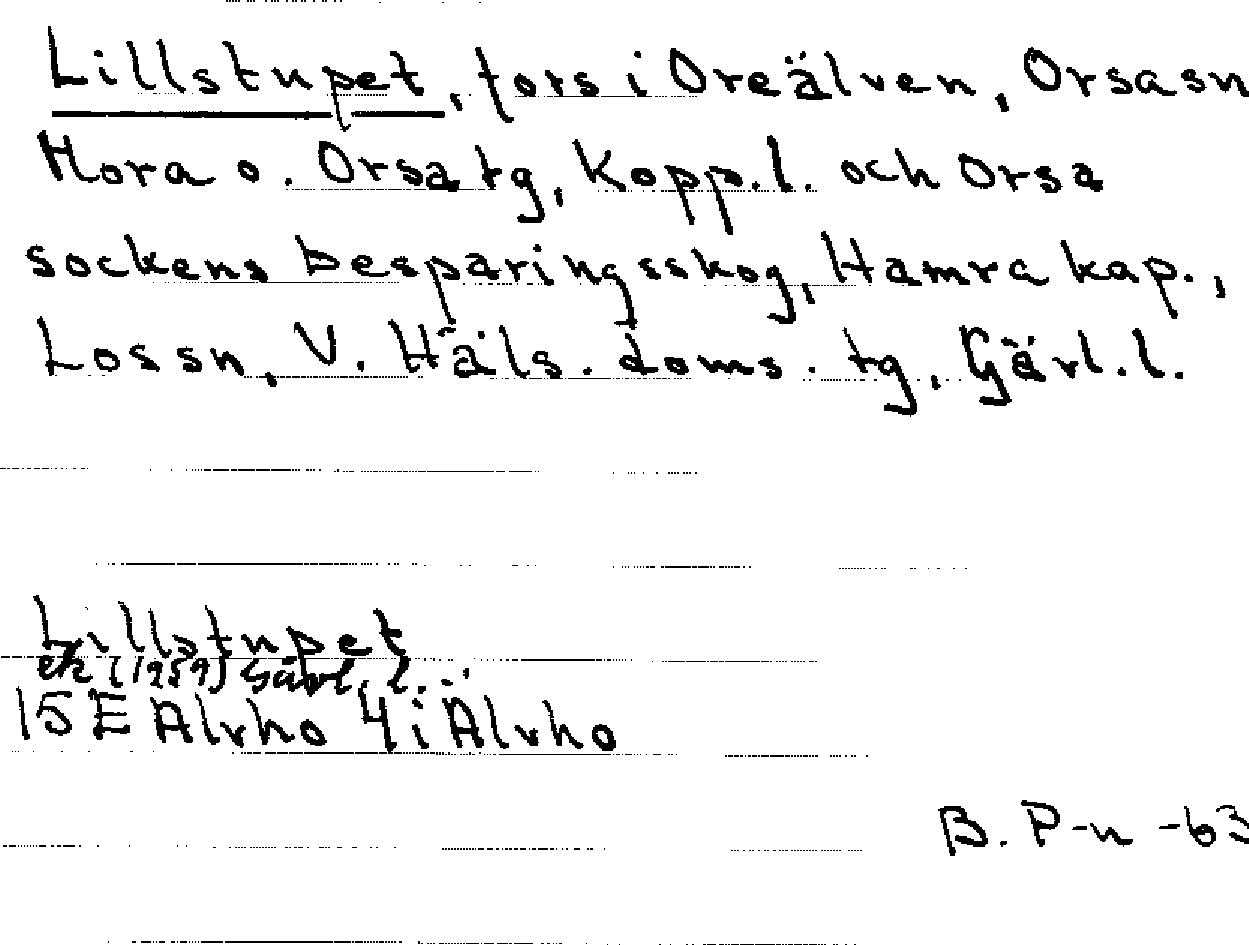 Lillstupet, fors i Oreälven, Orsasn
Mora o. Orsa tg, Kopp.l. och Orsa
sockens besparingsskog, Hamra kap.,
Lossn, V. Häls. doms. tg, Gävl.l.
Lillstupet
ek (1959) Gävl. l.
15E Älvho 4i Älvho
B. P-n -63